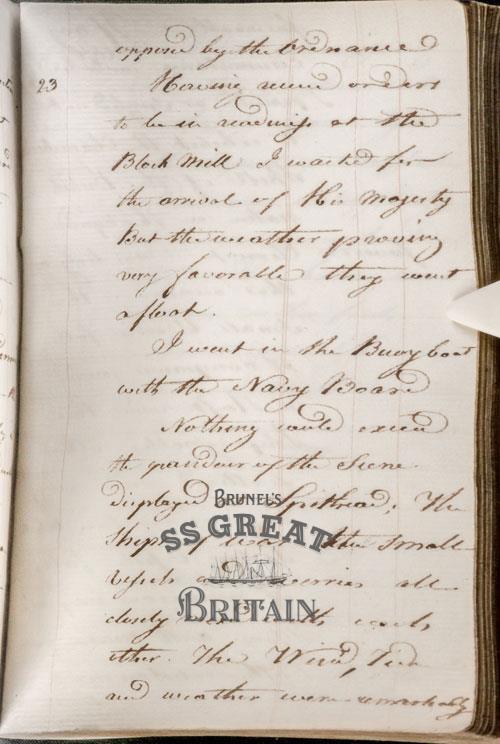 opposed by the Ordnance
23 Having recd orders
to be in readiness at the
Block Mill I waited for
the arrival of His Majesty
But the weather proving
very favorable they went
afloat.
I went in the Buoy boat
with the Navy Board
Nothing could exceed
the grandeur of the Scene
displayed Spithead; The
Ships of the small
Vessels and wherries all
closely with each
other. The Wind, Tide
and weather were remarkably
BRUNEL'S
SS GREAT
BRITAIN